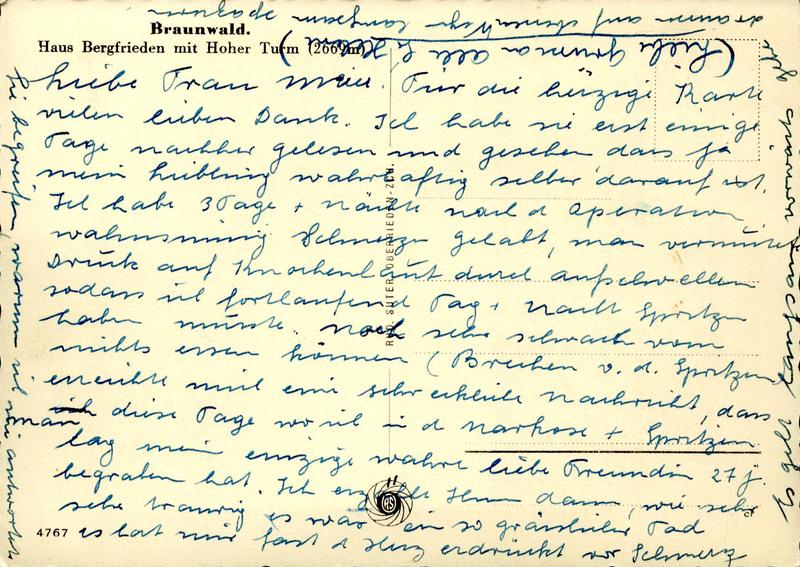 Braunwald.
Haus Bergfrieden mit Hoher Turm (2669m)
Liebe Frau Meier. Für die herzige Karte
vielen lieben Dank. Ich habe sie erst einige
Tage nachher gelesen und gesehen dass ja
mein Liebling wahrhaftig selber darauf ist.
Ich habe 3 Tage + Nächte nach d Operation
wahnsinnig Schmerzen gehabt, man vermutet
Druck auf Knochenhaut durch aufschwellen
sodass ich fortlaufend Tag + Nacht Spritzen
haben müsste. noch sehr schwach vom
nichts essen können (Brechen v. d. Spritzen
erreichte mich eine schreckliche Nachricht, dass
man diese Tage wo ich in d Narkose + Spritzen
lag mein einzige wahre liebe Freundin 27 j.
begraben hat. Ich erzähle Ihnen dann, wie sehr
sehr traurig es war ein so grässlicher Tod
es hat mir fast d Herz erdrückt vor Schmerz
Sie begreifen, warum ich nie antwortete
draussen auf ebenen Wegen langsam spazieren
(Liebe Grüsse an alle
RUD. SUTER, OBERRIEDEN-ZCH.
4767